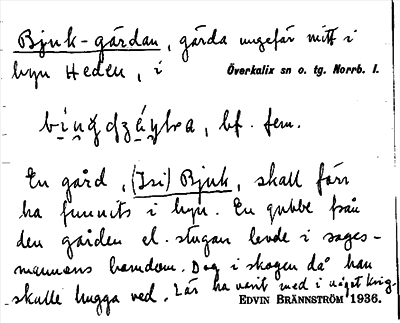 Bjuk-gårdan, gärda ungefär mitt i
byn Heden, i Överkalix sn o. tg. Norrb. l.
bf. fem.
En gård, (Isi) Bjuk, skall förr
ha funnits i byn. En gubbe från
den gården el. stugan levde i sages-
mannens barndom. Dog i skogen då han
skulle hugga ved. Lär ha varit med i något krig.
EDVIN BRÄNNSTRÖM 1936.